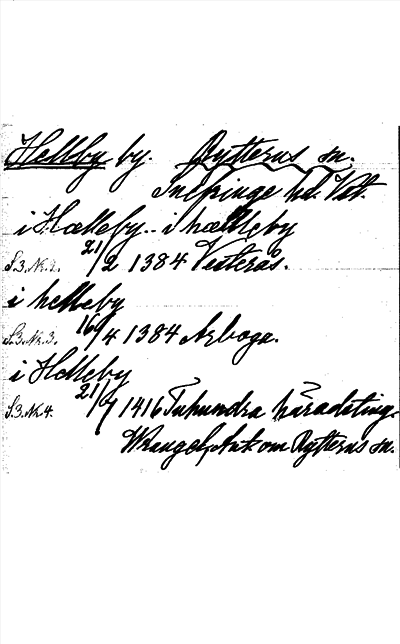 Hellby by. Rytterns sn.
Snefringe hd. Vstl.
i Hælleby - i hælleby
S.3.Nr.2. 21/2 1384 Vesterås.
i helleby
S.3.Nr.3. 16/4 1384 Arboga.
i Helleby
S.3.Nr.4. 21/7 1416 Tuhundra häradsting.
Wrangel, Ant om Rytterns sn.